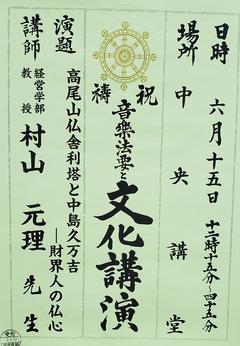 日時 六月十五日 十二時十五分～四十五分
場所 中央講堂
祝禱
音樂法要と
文化講演
演題 高尾山仏舎利塔と中島久万吉
―財界人の仏心
講師 経営学部
教授 村山 元理 先生